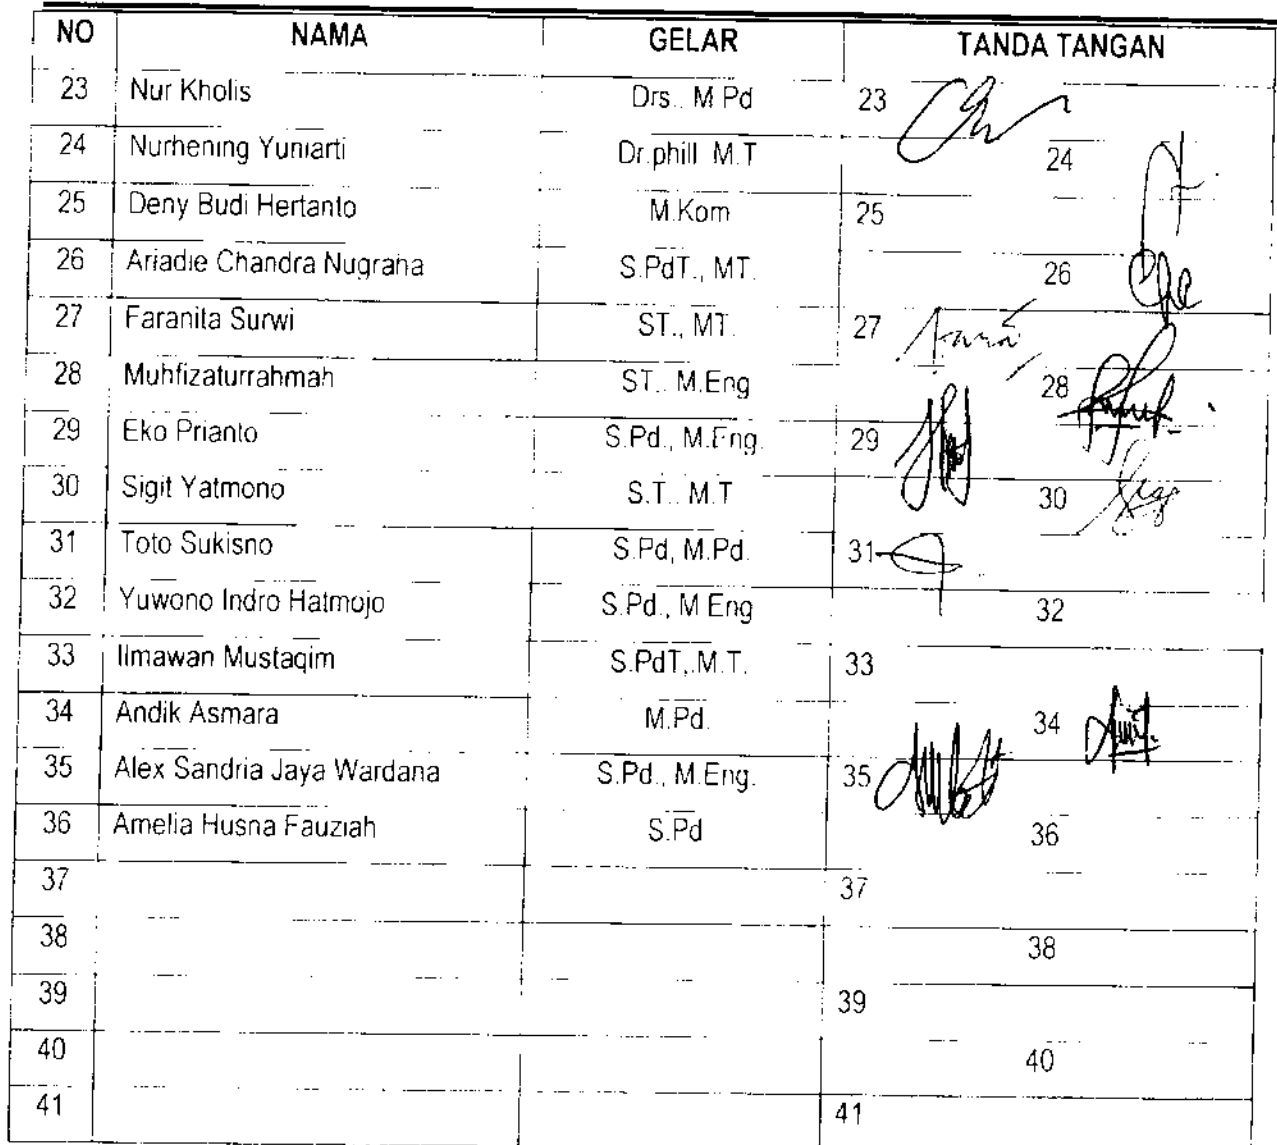 NO NAMA GELAR TANDA TANGAN
23 Nur Kholis Drs.. M Pd 23
24 Nurhening Yuniarti Dr.phill M.T 24
25 Deny Budi Hertanto M.Kom 25
26 Ariadie Chandra Nugraha S.PdT., MT. 26
27 Faranita Surwi ST., MT. 27
28 Muhfizaturrahmah ST.. M.Eng 28
29 Eko Prianto S.Pd., M.Eng. 29
30 Sigit Yatmono S.T.. M.T 30
31 Toto Sukisno S.Pd, M.Pd. 31
32 Yuwono Indro Hatmojo S.Pd., M Eng 32
33 Ilmawan Mustaqim S.PdT, M.T. 33
34 Andik Asmara M.Pd. 34
35 Alex Sandria Jaya Wardana S.Pd., M.Eng. 35
36 Amelia Husna Fauziah S.Pd 36
37 37
38 38
39 39
40 40
41 41